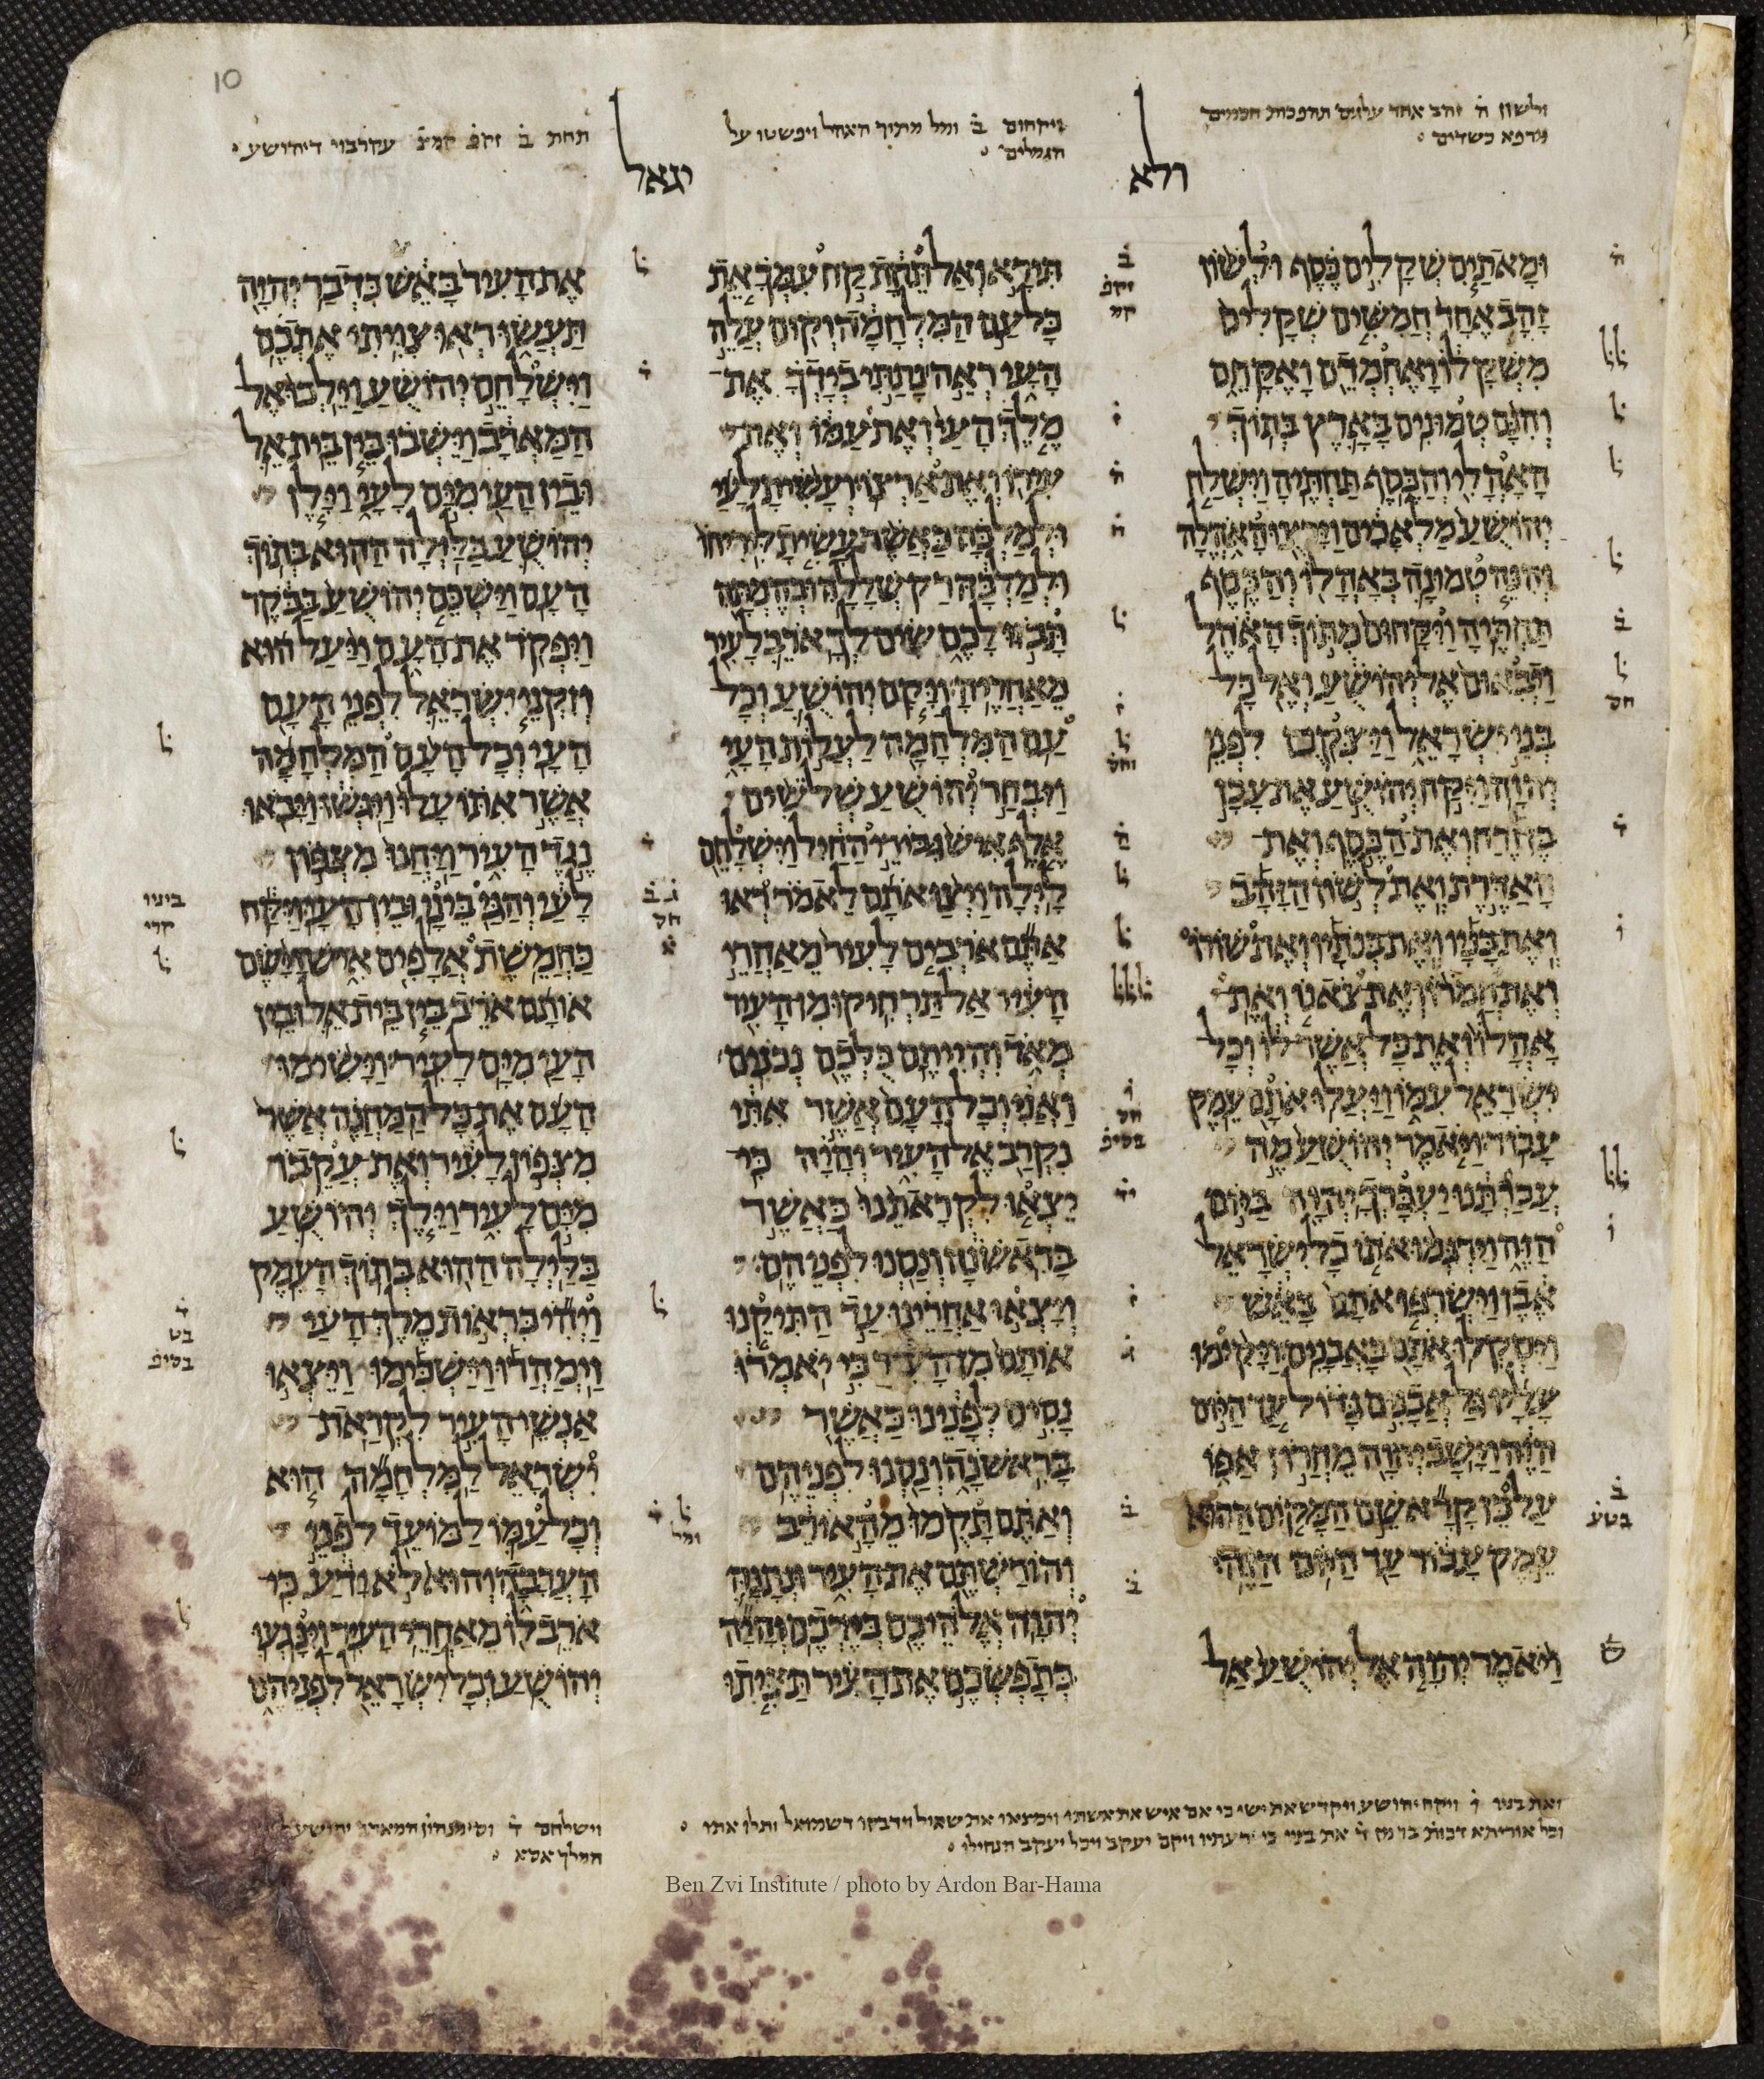 10
ולשון ה̇ זהב אחד ערומים תהפכות חכמים
מרפא כשדים
ויקחום ב̇ וחל מתוך האהל ויפשטו על
הגמלים
תחת ב̇ זקפ קמצ עקרבוי דיהושע
ולא
יגאל
ומאתים שקלים כסף ולשון
זהב אחד חמשים שקלים
משקלו ואחמדם ואקחם
והנם טמונים בארץ בתוך
האהלי והכסף תחתיה וישלח
יהושע מלאכים וירצו האהלה
והנה טמונה באהלו והכסף
תחתיה ויקחום מתוך האהל
ויבאום אל יהושע ואל כל
בני ישראל ויצקם לפני
יהוה ויקח יהושע את עכן
בן זרח ואת הכסף ואת
האדרת ואת לשון הזהב
ואת בניו ואת בנתיו ואת שורו
ואת חמרו ואת צאנו ואת
אהלו ואת כל אשר לו וכל
ישראל עמו ויעלו אתם עמק
עכור ויאמר יהושע מה
עכרתנו יעכרך יהוה ביום
הזה וירגמו אתו כל ישראל
אבן וישרפו אתם באש
ויסקלו אתם באבנים ויקימו
עליו גל אבנים גדול עד היום
הזה וישב יהוה מחרון אפו
על כן קרא שם המקום ההוא
עמק עכור עד היום הזה
ויאמר יהוה אל יהושע אל
תירא ואל תחת קח עמך את
כל עם המלחמה וקום עלה
העי ראה נתתי בידך את
מלך העי ואת עמו ואת
עירו ואת ארצו ועשית לעי
ולמלכה כאשר עשית ליריחו
ולמלכה רק שללה ובהמתה
תבזו לכם שים לך ארב לעיר
מאחריה ויקם יהושע וכל
עם המלחמה לעלות העי
ויבחר יהושע שלשים
אלף איש גבורי החיל וישלחם
לילה ויצו אתם לאמר ראו
אתם ארבים לעיר מאחרי
העיר אל תרחיקו מן העיר
מאד והייתם כלכם נכנים
ואני וכל העם אשר אתי
נקרב אל העיר והיה כי
יצאו לקראתנו כאשר
בראשנה ונסנו לפניהם
ויצאו אחרינו עד התיקנו
אותם מן העיר כי יאמרו
נסים לפנינו כאשר
בראשנה ונסנו לפניהם
ואתם תקמו מהאורב
והורשתם את העיר ונתנה
יהוה אלהיכם בידכם והיה
כתפשכם את העיר תציתו
את העיר באש כדבר יהוה
תעשו ראו צויתי אתכם
וישלחם יהושע וילכו אל
המארב וישבו בין בית אל
ובין העי מים לעי וילן
יהושע בלילה ההוא בתוך
העם וישכם יהושע בבקר
ויפקד את העם ויעל הוא
וזקני ישראל לפני העם
העי וכל העם המלחמה
אשר אתו עלו ויגשו ויבאו
נגד העיר ויחנו מצפון
לעי והגי בינו ובין העי ויקח
כחמשת אלפים איש וישם
אותם ארב בין בית אל ובין
העי מים לעיר וישימו
העם את כל המחנה אשר
מצפון לעיר ואת עקבו
מים לעיר וילך יהושע
בלילה ההוא בתוך העמק
ויהי כראות מלך העי
וימהרו וישכימו ויצאו
אנשי העיר לקראת
ישראל למלחמה הוא
וכל עמו למועד לפני
הערבה והוא לא ידע כי
ארב לו מאחרי העיר וינגעו
יהושע וכל ישראל לפניהם
ביניו
קרי
ואת בניו ו̇ ויקח יהושע ויקדש את ישי כי אם איש את אשתו וימצאו את שאול וידבקו דשמואל ותלו אתו
וכל אוריתא דכות בר מן ד̇ את בניו כי ידעתיו ויקם יעקב ויכל יעקב הנחילו
וישלחם ד̇ וסימנהון המארב יהושע
המלך אסא
Ben Zvi Institute / photo by Ardon Bar-Hama